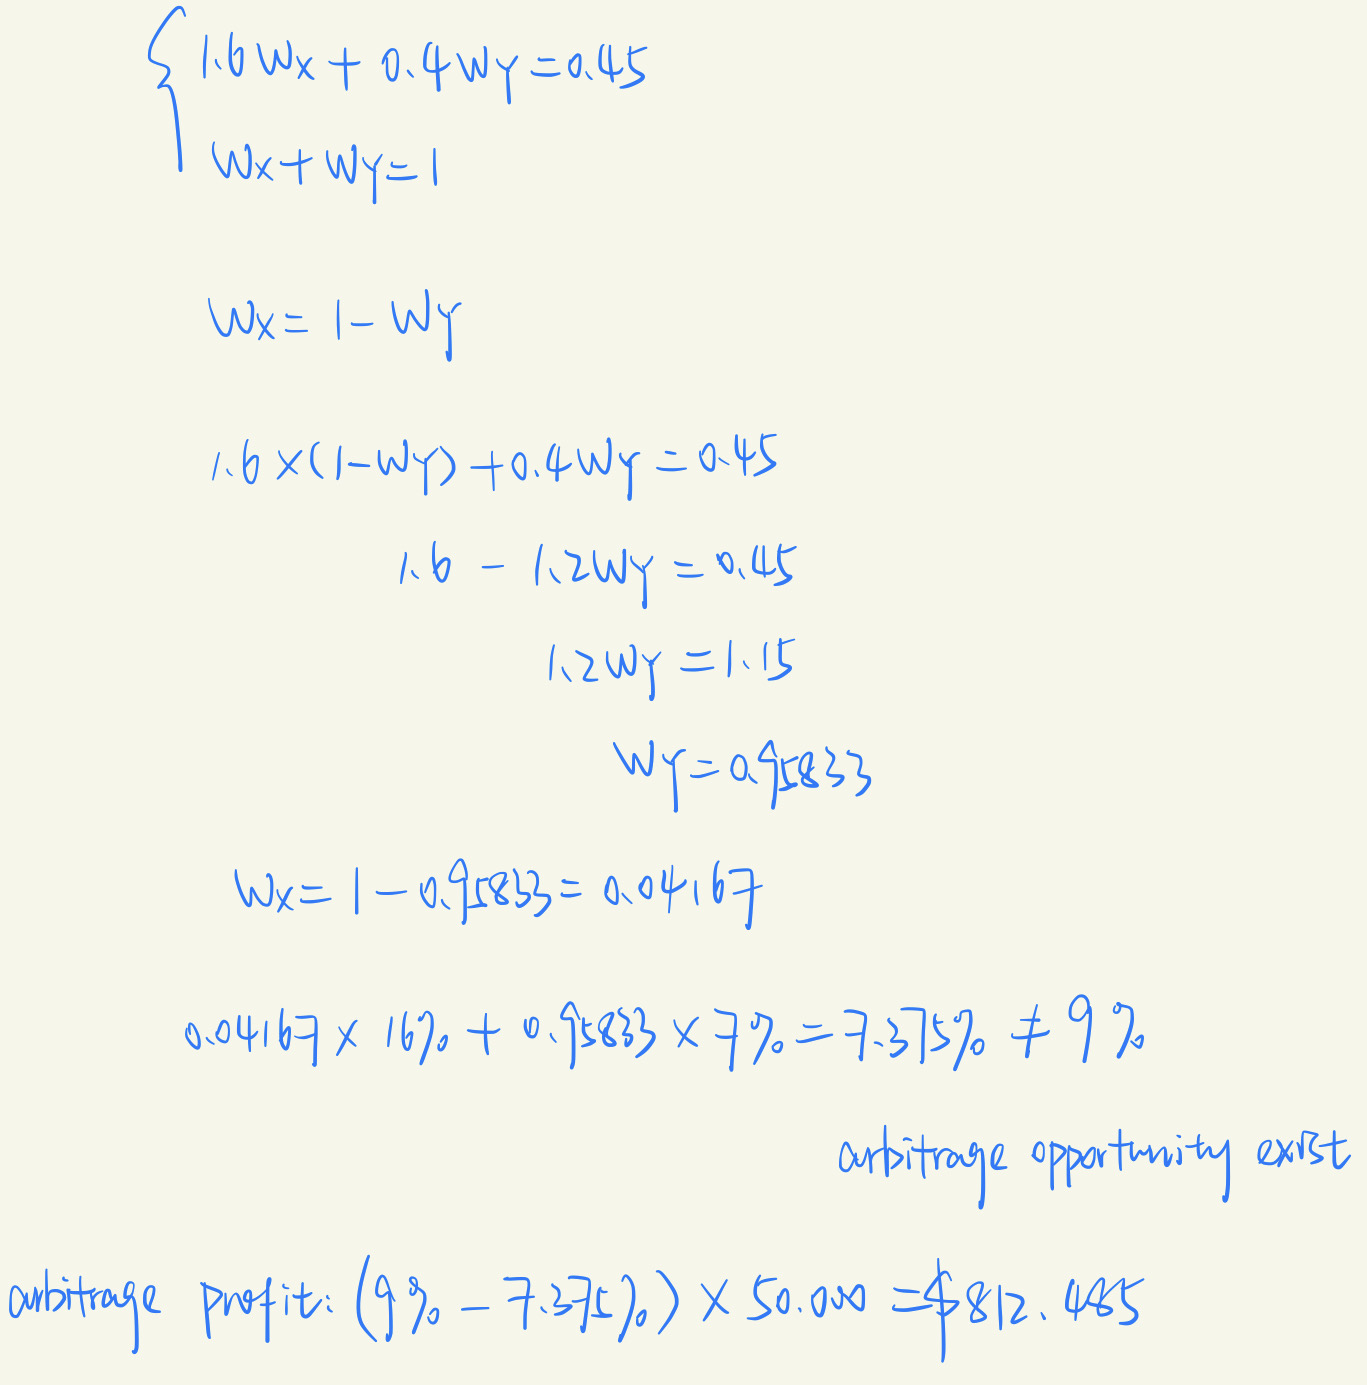 1.6Wx + 0.4Wy = 0.45
Wx + Wy = 1
Wx = 1 - Wy
1.6 × (1 - Wy) + 0.4Wy = 0.45
1.6 - 1.2Wy = 0.45
1.2Wy = 1.15
Wy = 0.95833
Wx = 1 - 0.95833 = 0.04167
0.04167 × 16% + 0.95833 × 7% = 7.375% ≠ 9%
arbitrage opportunity exist
arbitrage profit: (9% - 7.375%) × 50.000 = $812.485